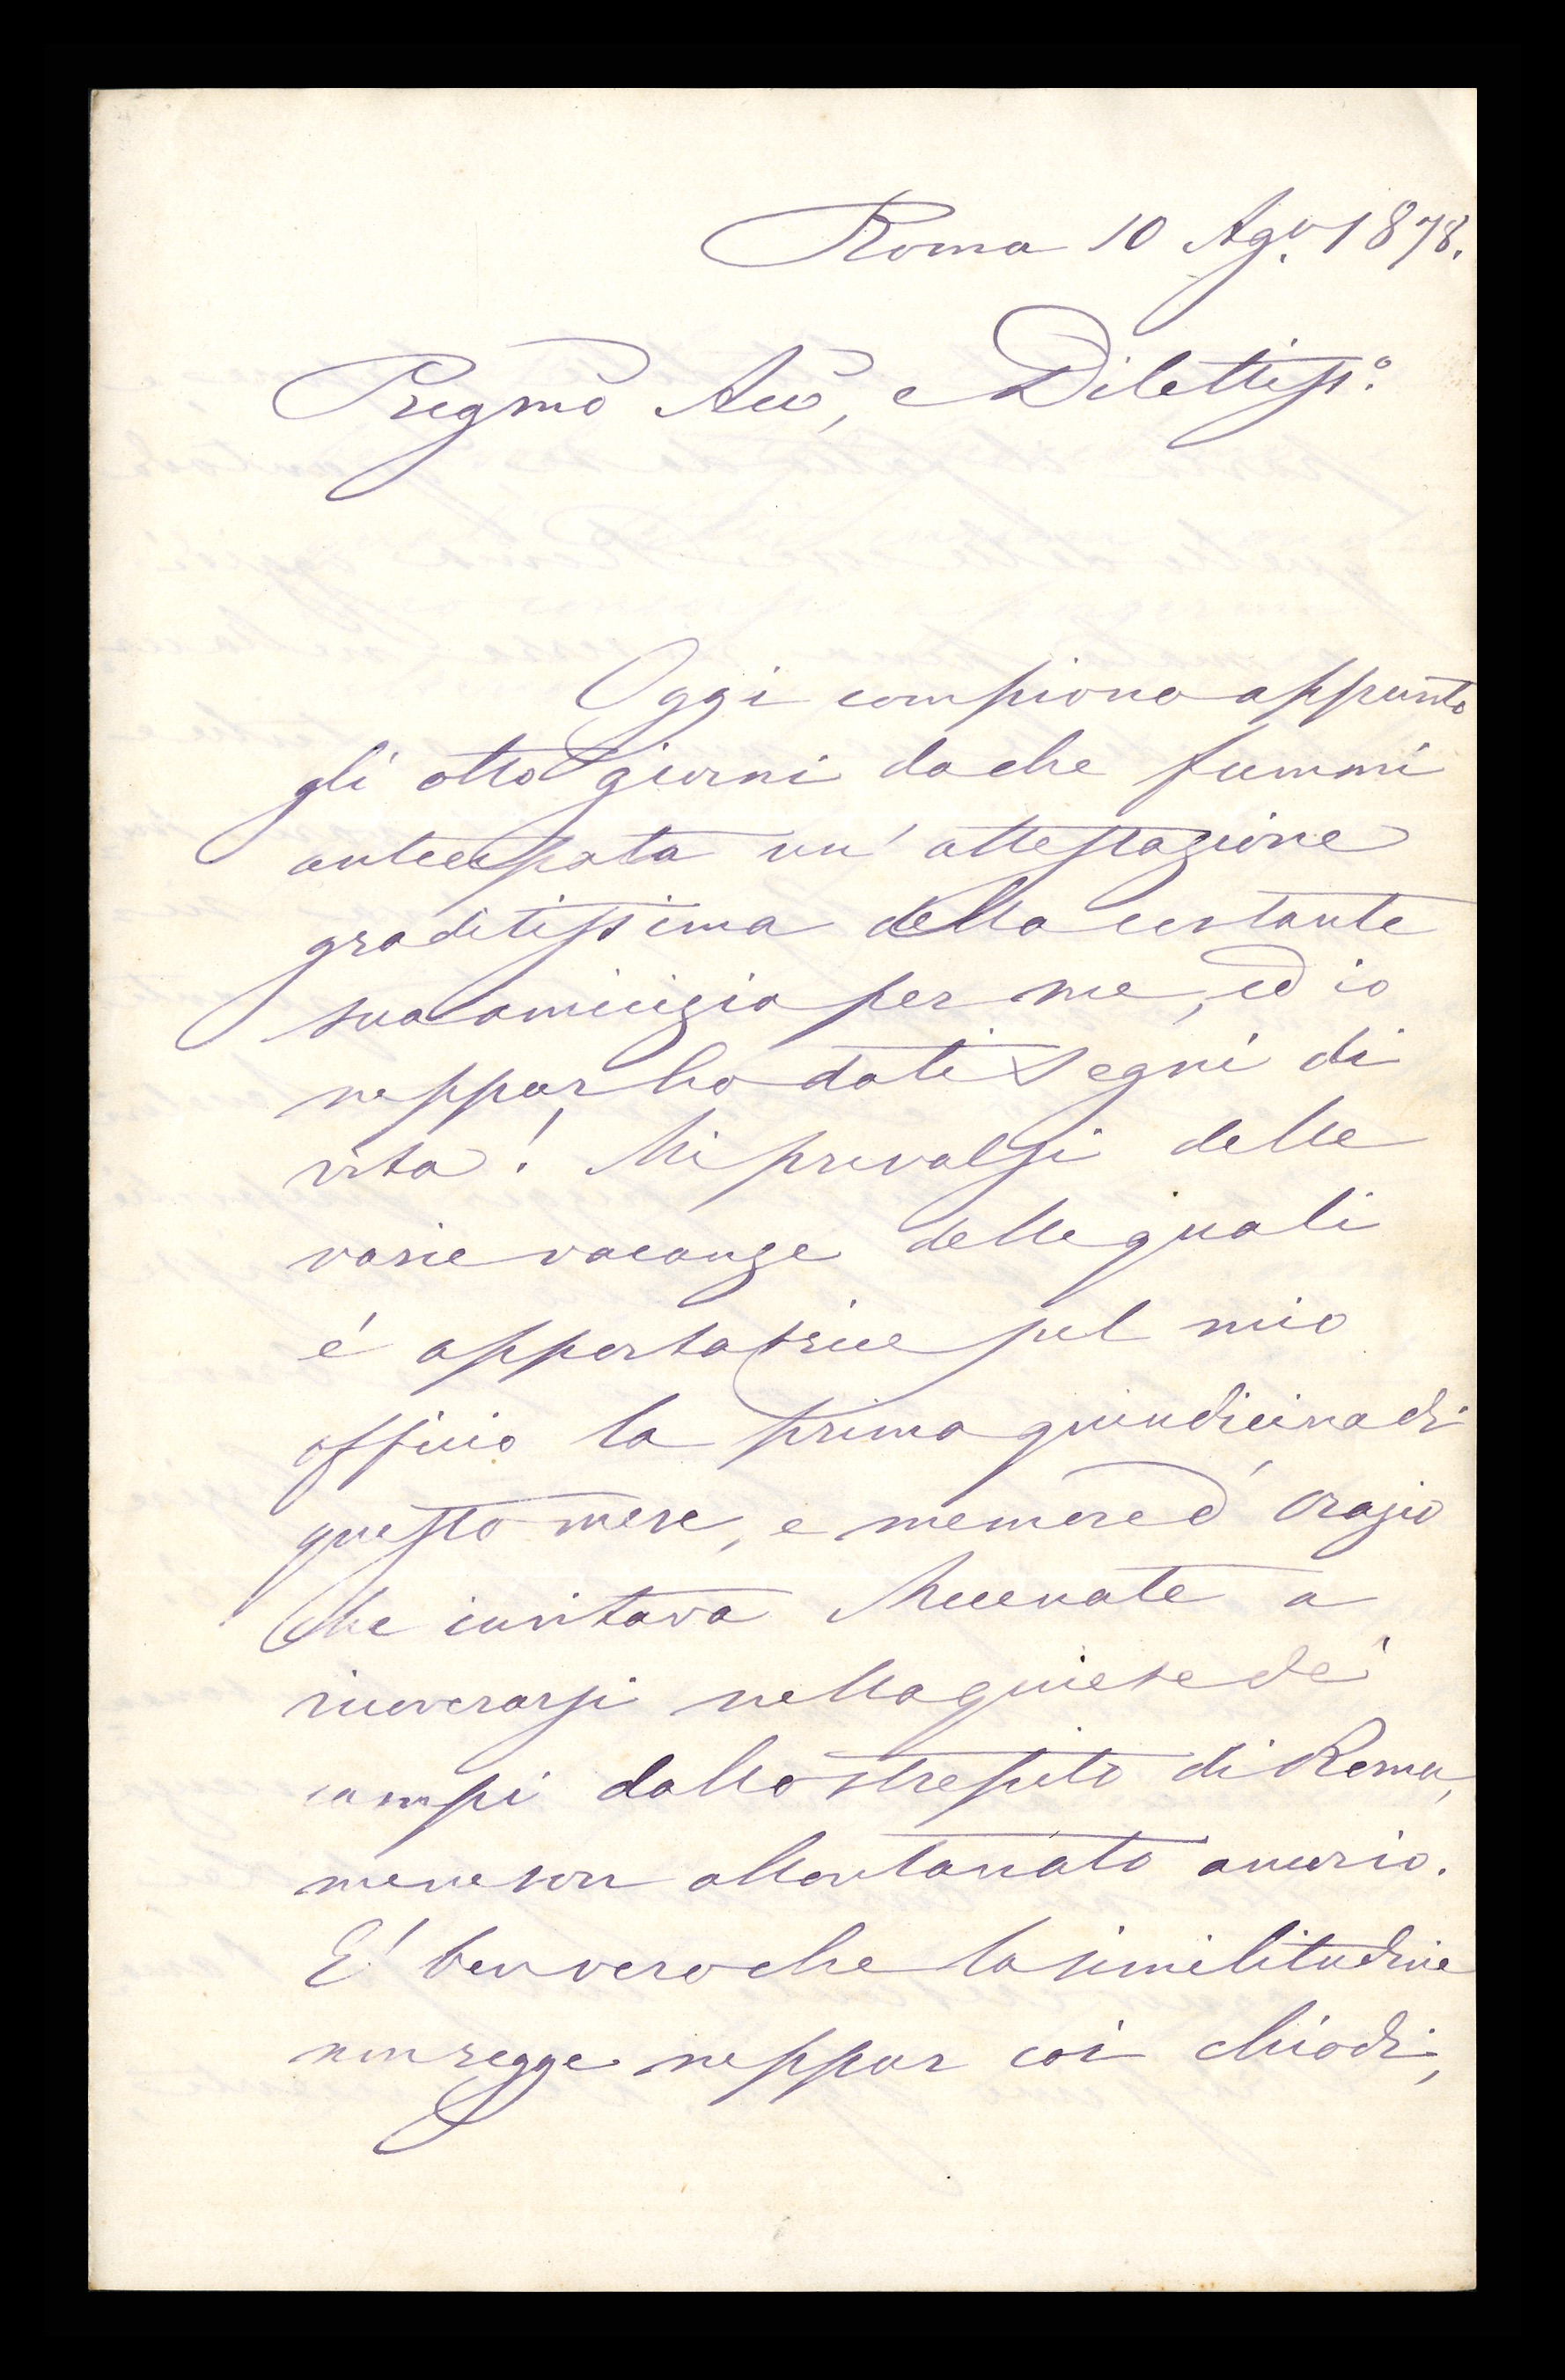 Roma 10 Ag.º 1878.
Pregmo Amico, e Dilettiss.º
Oggi compiono appunto
gli otto giorni da che fummi
anticipata un' attestazione
graditissima della costante
sua amicizia per me, ed io
neppur ho dati segni di
vita! Mi prevalsi delle
varie vacanze delle quali
é apportatrice pel mio
officio la prima quindicina di
questo mese, e memore d' Orazio
che invitava Mecenate a
ricoverarsi nella quiete de'
campi dallo strepito di Roma,
me ne son allontanato anch'io.
E' ben vero che la similitudine
non regge neppur coi chiodi,